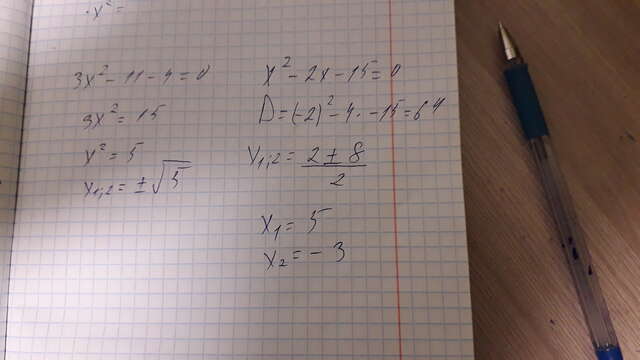 x² =
3x² - 11 - 4 = 0
3x² = 15
x² = 5
x₁,₂ = ±√5
x² - 2x - 15 = 0
D = (-2)² - 4 · -15 = 64
x₁,₂ = (2 ± 8)/2
x₁ = 5
x₂ = -3